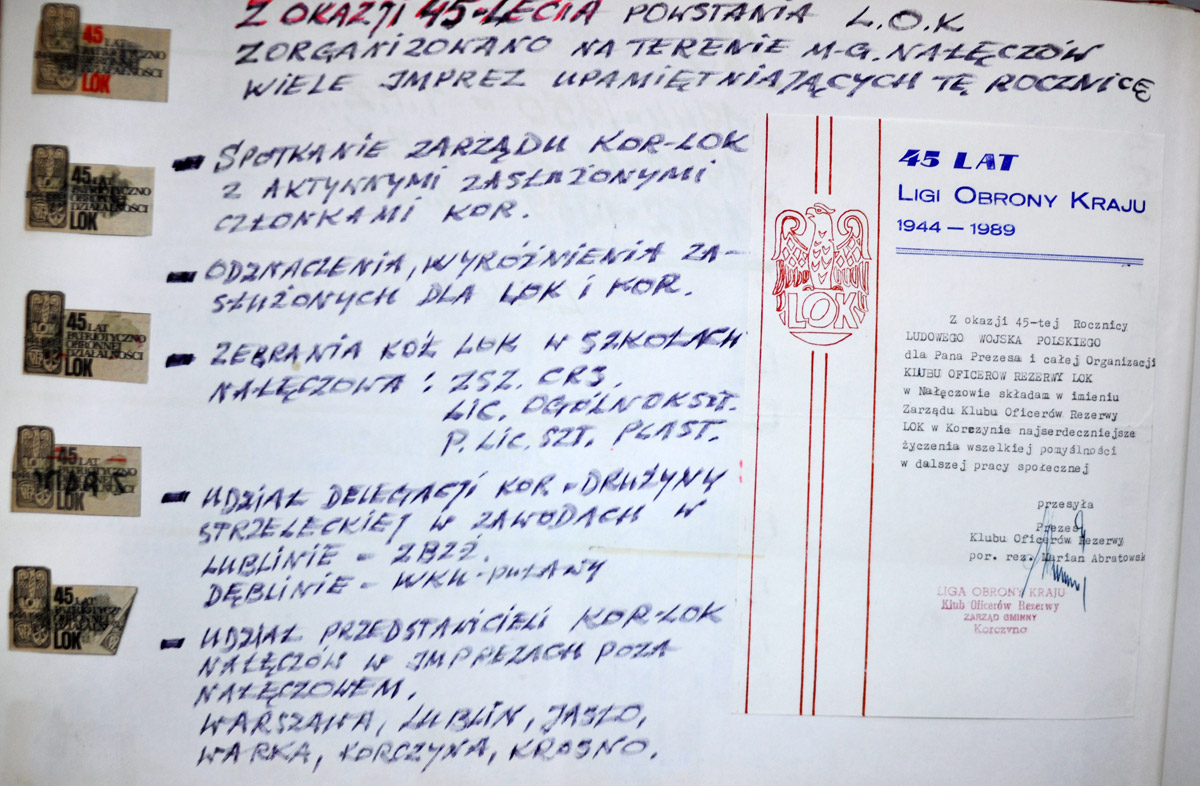 Z OKAZJI 45-LECIA POWSTANIA L.O.K
ZORGANIZOWANO NA TERENIE M-G. NAŁĘCZÓW
WIELE IMPREZ UPAMIĘTNIAJĄCYCH TĘ ROCZNICĘ
- SPOTKANIE ZARZĄDU KOR-LOK
Z AKTYWNYMI ZASŁUŻONYMI
CZŁONKAMI KOR.
- ODZNACZENIA, WYRÓŻNIENIA ZA-
SŁUŻONYCH DLA LOK I KOR.
- ZEBRANIA KÓŁ LOK W SZKOŁACH
NAŁĘCZOWA: ZSZ. CRS,
LIC. OGÓLNOKSZT.
P. LIC. SZT. PLAST.
- UDZIAŁ DELEGACJI KOR-DRUŻYNY
STRZELECKIEJ W ZAWODACH W
LUBLINIE - ZBŻZ.
DĘBLINIE - WKU-PUŁAWY
- UDZIAŁ PRZEDSTAWICIELI KOR-LOK
NAŁĘCZÓW W IMPREZACH POZA
NAŁĘCZOWEM.
WARSZAWA, LUBLIN, JASŁO,
WARKA, KORCZYNA, KROSNO.
45
LAT
LOK
45 LAT
PATRIOTYCZNO
OBRONNEJ
DZIAŁALNOŚCI
LOK
45 LAT
PATRIOTYCZNO
OBRONNEJ
DZIAŁALNOŚCI
LOK
45 LAT
LOK
45 LAT
LOK
45 LAT
LIGI OBRONY KRAJU
1944 — 1989
LOK
Z okazji 45-tej Rocznicy
LUDOWEGO WOJSKA POLSKIEGO
dla Pana Prezesa i całej Organizacji
KLUBU OFICEROW REZERWY LOK
w Nałęczowie składam w imieniu
Zarządu Klubu Oficerów Rezerwy
LOK w Korczynie najserdeczniejsze
życzenia wszelkiej pomyślności
w dalszej pracy społecznej
przesyła
Prezes
Klubu Oficerów Rezerwy
por. rez. Marian Abratowsk
LIGA OBRONY KRAJU
Klub Oficerów Rezerwy
ZARZĄD GMINNY
Korczyno